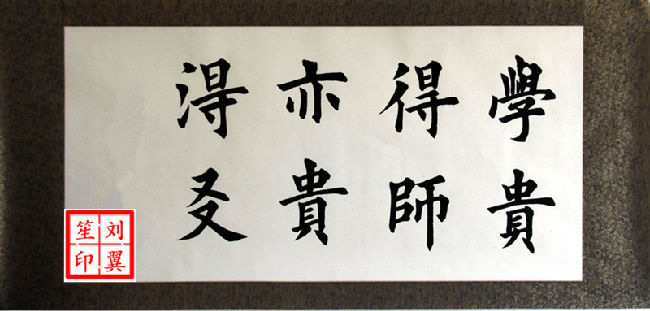 學貴
得師
亦貴
淂㕛
刘翼
笙印